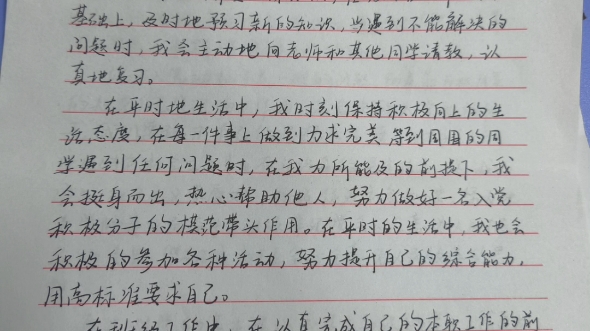 基础上，及时地预习新的知识，当遇到不能解决的
问题时，我会主动地向老师和其他同学请教，认
真地复习。
在平时地生活中，我时刻保持积极向上的生
活态度，在每一件事上做到力求完美 等到周围的同
学遇到任何问题时，在我力所能及的前提下，我
会挺身而出，热心帮助他人，努力做好一名入党
积极分子的模范带头作用。在平时的生活中，我也会
积极的参加各种活动，努力提升自己的综合能力，
用高标准要求自己。
工作中，在认真完成自己的本职工作的前